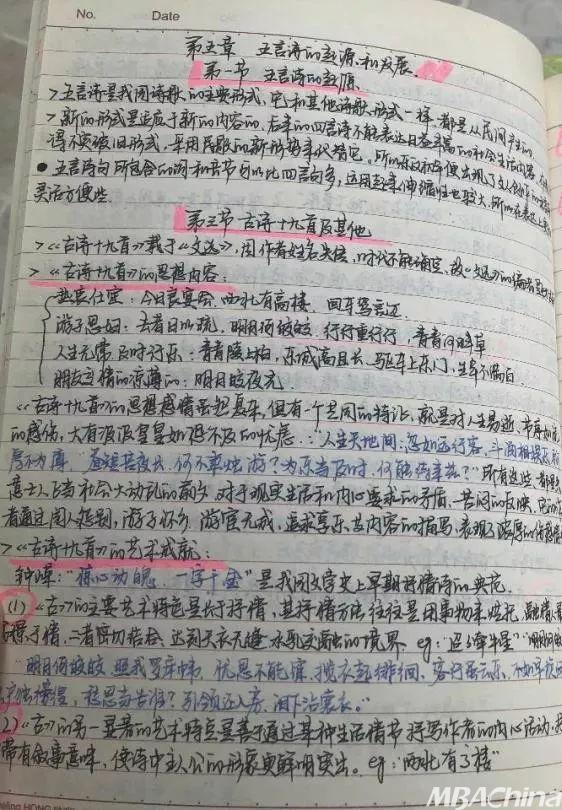 No.
Date
第五章 五言诗的起源和发展.
第一节 五言诗的起源.
>五言诗是我国诗歌的主要形式,它和其他诗歌形式一样,都是从民间产生的
>新的形式是适应于新的内容的,后来的四言诗不能表达日益丰富的社会生活内容,
得不突破旧形式,采用民歌的新形势来代替它,所以东汉初年便出现了文人创作的
●五言诗句所包含的词和音节可以比四言句多,运用起来伸缩性也较大,所以在表达上
灵活方便些.
第三节 古诗十九首及其他
>《古诗十九首》载于《文选》,因作者姓名失传,时代不能确定,故《文选》的编者
>《古诗十九首》的思想内容:
热衷仕宦:今日良宴会 西北有高楼 回车驾言迈
游子思妇:去者日以疏,明月何皎皎,行行重行行,青青河畔草
人生无常 及时行乐:青青陵上柏,东城高且长,驱车上东门,生年不满百
朋友交情的凉薄的:明月皎夜光
《古诗十九首》的思想感情虽然复杂,但有一个共同的特征,就是对人生易逝、节序如流
的感伤,大有汲汲皇皇如恐不及的忧虑."人生天地间,忽如远行客,斗酒相娱乐,
厚不为薄""昼短苦夜长,何不秉烛游?为乐当及时,何能待来兹?"所有这些,都是
意士人在当社会大动乱的前夕,对于现实生活和内心要求的矛盾、苦闷的反映,
者通过闺人怨别,游子怀乡,游宦无成,追求享乐等内容的描写,表现了浓厚的
>《古诗十九首》的艺术成就:
钟嵘:"惊心动魄,一字千金"是我国文学史上早期抒情诗的典范.
(1)《古》的主要艺术特色是长于抒情,其抒情方法往往是用事物来烘托,融情入景
寓景于情,二者密切结合,达到天衣无缝,水乳交融的境界.eg:"迢迢牵牛星""明月何皎
"明月何皎皎,照我罗床帏,忧愁不能寐,揽衣起徘徊,客行虽云乐,不如早旋
户独彷徨,愁思当告谁?引领还入房,泪下沾裳衣."
(2)《古》的另一显著的艺术特点是善于通过某种生活情节抒写作者的内心活动,
带有叙事意味,使诗中主人公的形象更鲜明突出.eg:"西北有高楼"
MBAChina